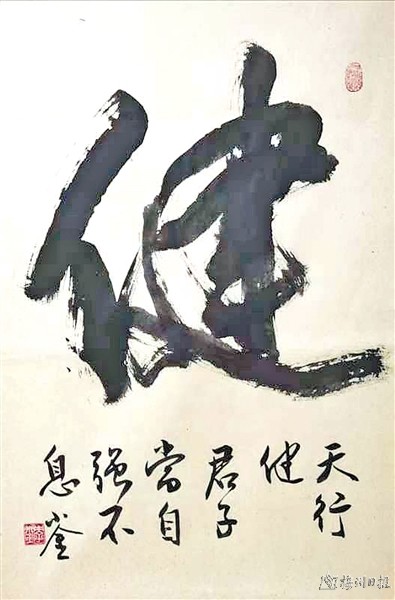 健
天行
健
君子
當自
强不
息
梅州日报